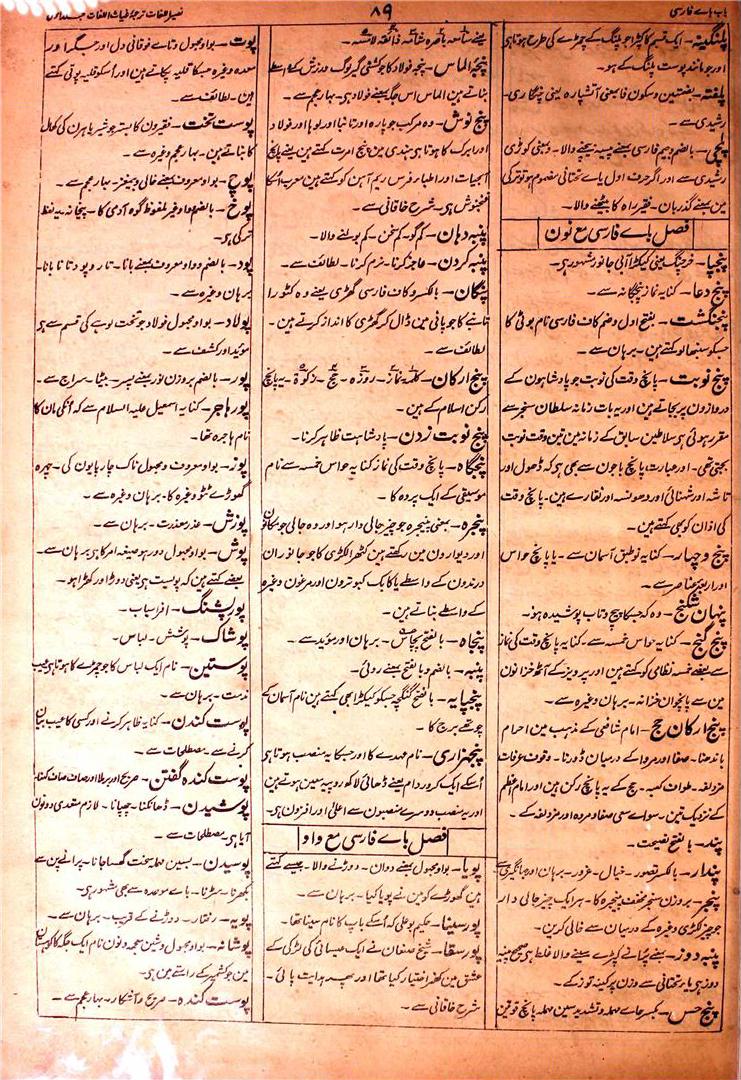 باب بائے فارسی
۸۹
نصیر اللغات ترجمۂ غیاث اللغات
پلنگینہ۔ ایک قسم کا کپڑا جو پلنگ کے چمڑے کی طرح ہوتا ہی
اور جو مانند پوست پلنگ کے ہو۔
پلفتہ۔ بفتحتین و سکون فا بمعنی آتشپارہ یعنی چنگاری۔
رشیدی سے۔
پلچی۔ بالضم وجیم فارسی بمعنے پیسہ بیچنے والا۔ وبمعنی کوڑی
رشیدی سے اور اگر حرف اول یاے تحتانی مفہوم ہو تو ترکی
مین بمعنے گذربان۔ فقیر راہ کا بیٹھنے والا۔
فصل باے فارسی مع نون
پنجپا۔ خرچنگ یعنی کیکڑا آبی جانور مشہور ہی۔
پنج دعا۔ کنایہ نماز پنجگانہ سے۔
پنجنگشت۔ بفتح اول وضم کاف فارسی نام بوٹی کا
جسکو سنبھالو کہتے ہین۔ برہان سے۔
پنج نوبت۔ پانچ وقت کی نوبت جو پادشاہون کے
دروازون پر بجاتے ہین اور یہ بات زمانہ سلطان سنجر سے
مقرر ہوئی ہی سلاطین سابق کے زمانہ مین تین وقت نوبت
بجتی تھی۔ اور عبارت پانچ باجون سے بھی ہی کہ ڈھول اور
تاشہ اور شہنائی اور دھونسہ اور نقارے ہین۔ پانچ وقت
کی اذان کو بھی کہتے ہین۔
پنج و چہار۔ کنایہ نو طبق آسمان سے۔ یا پانچ حواس
اور اربعہ عناصر سے۔
پنہان شکنج۔ وہ کہ جسکا پیچ و تاب پوشیدہ ہو۔
پنج گنج۔ کنایہ حواس خمسہ سے۔ کنایہ پانچ وقت کی نماز
سے بعضے خمسہ نظامی کو کہتے ہین اور پرویز کے آٹھ خزانون
مین سے پانچوان خزانہ۔ برہان وغیرہ سے۔
پنج ارکان حج۔ امام شافعی کے مذہب مین احرام
باندھنا۔ صفا اور مروا کے درمیان دوڑنا۔ وقوف عرفات
مزدلفہ۔ طواف کعبہ۔ حج کے یہ پانچ رکن ہین اور امام اعظم
کے نزدیک تین۔ سواے سعی صفا و مروہ اور مزدلفہ کے۔
پند۔ بالفتح نصیحت۔
پندار۔ بالکسر تصور۔ خیال۔ غرور۔ برہان اور جہانگیری سے
پنجر۔ بروزن سنجر مخفف پنجرہ کا۔ ہر ایک چیز جالی دار
جو چیز لکڑی وغیرہ کے درمیان سے خالی کرین۔
پنبہ دوز۔ بمعنے پٹانے کپڑے سینے والا غلط ہی صحیح پینہ
دوز ہی بیاے تحتانی سے وزن پر کینہ توز کے۔
پنج حس۔ بکسر حاے مہملہ و تشدید سین مہملہ پانچ قوتین
یعنے سامعہ باصرہ شامہ ذائقہ لامسہ۔
پنجۂ الماس۔ پنجہ فولاد کا جو کشتی گیر لوگ ورزش کے واسطے
بناتے ہین الماس اس جگہ بمعنے فولاد ہی۔ بہار عجم سے۔
پنج نوش۔ وہ مرکب جو پارہ اور تانبا اور لوہا اور فولاد
اور ابرک کا ہوتا ہی ہندی مین پنج امرت کہتے ہین یعنے پانچ
آبحیات اور اطباء فرس ریم آہن کو کہتے ہین معرب اسکا
فنجنوش ہی۔ شرح خاقانی سے۔
پنبہ دہان۔ کم گو۔ کم سخن۔ کم بولنے والا۔
پنبہ کردن۔ عاجز کرنا۔ نرم کرنا۔ لطائف سے۔
پنگان۔ بالکسر و کاف فارسی گھڑی یعنے وہ کٹورا
تانبے کا جو پانی مین ڈال کر گھڑی کا اندازہ کرتے ہین۔
لطائف سے۔
پنج ارکان۔ کلمہ نماز۔ روزہ۔ حج۔ زکوٰۃ۔ یہ پانچ
رکن اسلام کے ہین۔
پنج نوبت زدن۔ پادشاہت ظاہر کرنا۔
پنجگاہ۔ پانچ وقت کی نماز کنایہ حواس خمسہ سے نام
موسیقی کے ایک پردہ کا۔
پنجرہ۔ بمعنی پنجیرہ جو چیز جالی دار ہو اور وہ جالی جو مکانون
اور دیوارون مین رکھتے ہین کٹھرا لکڑی کا جو جانوران
درندون کے واسطے یا کابک کبوترون اور مرغون وغیرہ
کے واسطے بناتے ہین۔
پنجاہ۔ بالفتح پچاس۔ برہان اور مؤید سے۔
پنبہ۔ بالضم و بالفتح بمعنے روئی۔
پنجپایہ۔ بالفتح کنگچہ جسکو کیکڑا بھی کہتے ہین نام آسمان کے
چوتھے برج کا۔
پنجہزاری۔ نام عہدے کا اور جسکا یہ منصب ہوتا ہی
اُسکے ایک کرور دام یعنے ڈھائی لاکھ روپیہ معین ہوتے ہین
اور یہ منصب دوسرے منصبون سے اعلیٰ اور افزون ہی۔
فصل باے فارسی مع واو
پویا۔ بواو مجہول بمعنے دوان۔ دوڑنے والا۔ جیسے کہتے
ہین گھوڑے کو مین نے پویا کیا۔ برہان سے۔
پورسینا۔ حکیم بوعلی کہ اُسکے باپ کا نام سینا تھا۔
پورسقا۔ شیخ صنعان نے ایک عیسائی کی لڑکی کے
عشق مین کفر اختیار کیا تھا اور پھر ہدایت پائی۔
شرح خاقانی سے۔
پوت۔ بواو مجہول وتاے فوقانی دل اور جگر اور
معدہ وغیرہ جسکا قلیہ پکاتے ہین اور اُسکو قلیہ پوتی کہتے
ہین۔ لطائف سے۔
پوست تخت۔ فقیرون کا بستر جو شیر یا ہرن کی کھال
کا بناتے ہین۔ بہار عجم وغیرہ سے۔
پوچ۔ بواو معروف بمعنے خالی وبیمغز۔ بہار عجم سے۔
پوخ۔ بالضم واو غیر ملفوظ گوہ آدمی کا۔ پنجانہ یہ لفظ
ترکی ہی۔
پود۔ بالضم و واو معروف بمعنے بانا۔ تار و پود تانا بانا۔
برہان وغیرہ سے۔
پولاد۔ بواو مجہول فولاد جو سخت لوہے کی قسم سے ہی
مؤید اور کشف سے۔
پور۔ بالضم بروزن نور بمعنے پسر۔ بیٹا۔ سراج سے۔
پور ہاجر۔ کنایہ اسمعیل علیہ السلام سے کہ اُنکی مان کا
نام ہاجرہ تھا۔
پوز۔ بواو معروف ومجہول ناک چارپایون کی۔ چہرہ
گھوڑے ٹٹو وغیرہ کا۔ برہان وغیرہ سے۔
پوزش۔ عذر معذرت۔ برہان سے۔
پوش۔ بواو مجہول دور ہو صیغہ امر کا ہی برہان سے۔
بعضے کہتے ہین کہ پوئیت ہی یعنی دوڑ اور کھڑا ہو۔
پورپشنگ۔ افراسیاب۔
پوشاک۔ پوشش۔ لباس۔
پوستین۔ نام ایک لباس کا جو چمڑے کا ہوتا ہی عیب
مذمت۔ برہان سے۔
پوست کندن۔ کنایہ ظاہر کرنے اور کسی کا عیب بیان
کرنے سے۔ مصطلحات سے۔
پوست کندہ گفتن۔ صریح اور برملا اور صاف صاف کہنا۔
پوشیدن۔ ڈھانکنا۔ چھپانا۔ لازم متعدی دونون
آیا ہی۔ مصطلحات سے۔
پوسیدن۔ بسین مہملہ سخت گھسا جانا۔ پرانے پن سے
بکھرنا۔ سڑنا۔ باے موحدہ سے بھی مشہور ہی۔
پویہ۔ رفتار۔ دوڑنے کے قریب۔ برہان سے۔
پوشانہ۔ بواو مجہول وشین معجمہ ونون نام ایک جگہ کا کوہستان
مین جو کشمیر کے راستے مین ہی۔
پوست کندہ۔ صریح و آشکار۔ بہار عجم سے۔